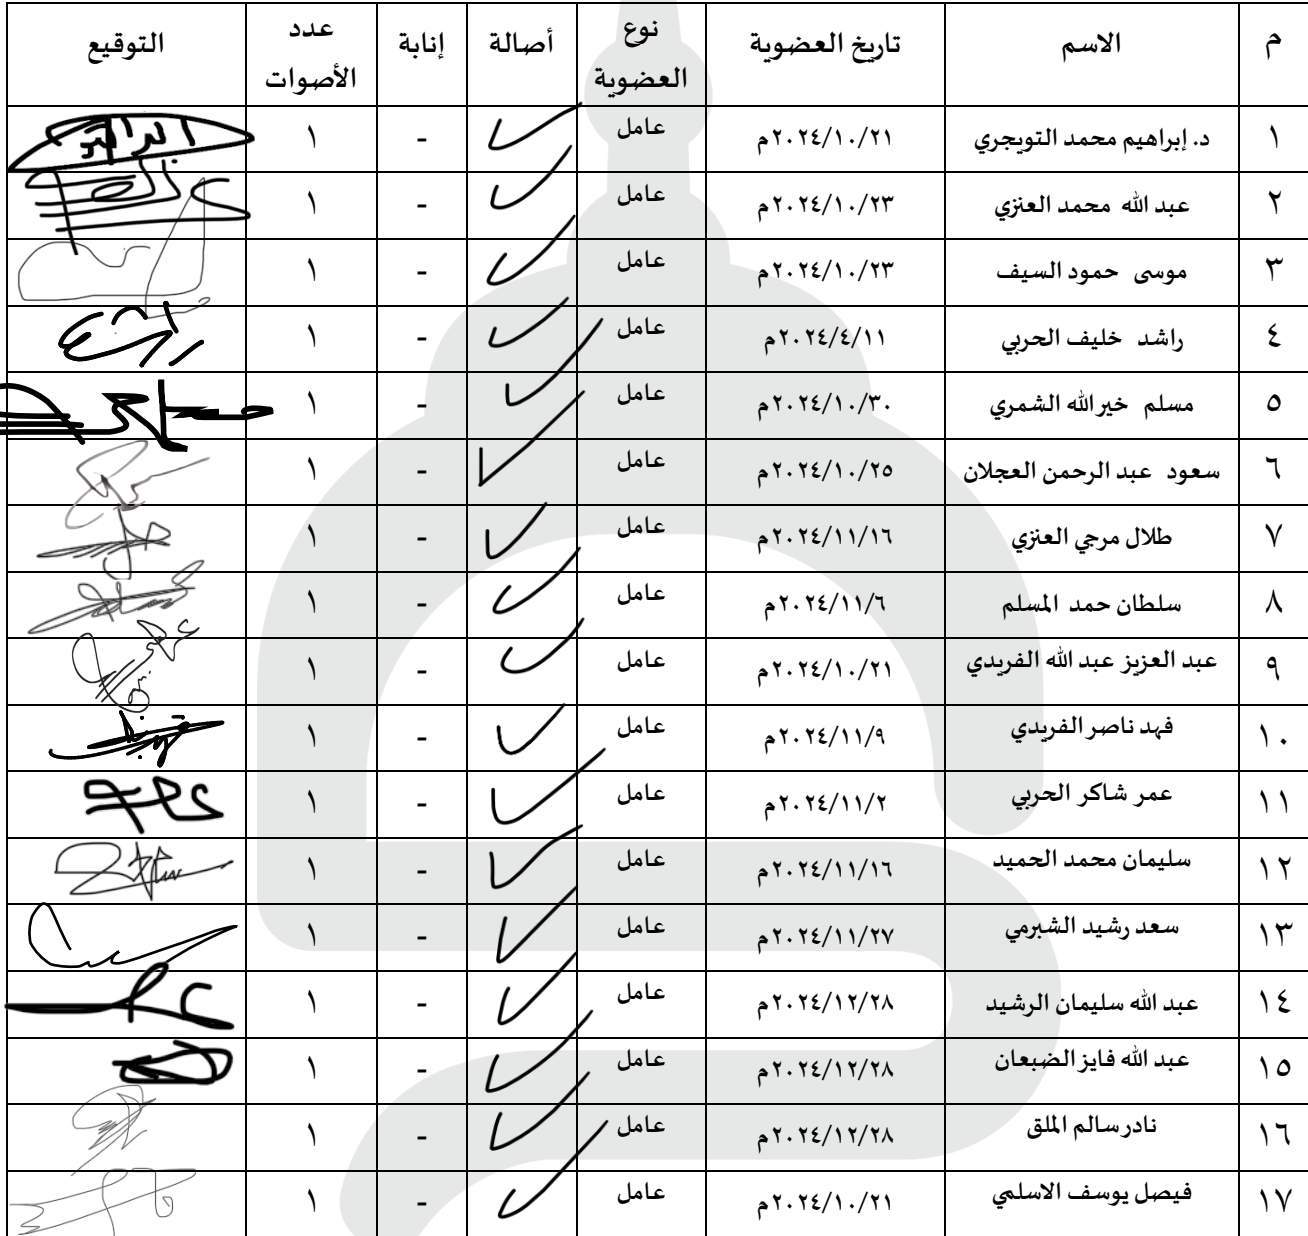 م الاسم تاريخ العضوية نوع العضوية أصالة إنابة عدد الأصوات التوقيع
١ د. إبراهيم محمد التويجري ٢٠٢٤/١٠/٢١م عامل - ١
٢ عبد الله محمد العنزي ٢٠٢٤/١٠/٢٣م عامل - ١
٣ موسى حمود السيف ٢٠٢٤/١٠/٢٣م عامل - ١
٤ راشد خليف الحربي ٢٠٢٤/٤/١١م عامل - ١
٥ مسلم خير الله الشمري ٢٠٢٤/١٠/٣٠م عامل - ١
٦ سعود عبد الرحمن العجلان ٢٠٢٤/١٠/٢٥م عامل - ١
٧ طلال مرجي العنزي ٢٠٢٤/١١/١٦م عامل - ١
٨ سلطان حمد المسلم ٢٠٢٤/١١/٦م عامل - ١
٩ عبد العزيز عبد الله الفريدي ٢٠٢٤/١٠/٢١م عامل - ١
١٠ فهد ناصر الفريدي ٢٠٢٤/١١/٩م عامل - ١
١١ عمر شاكر الحربي ٢٠٢٤/١١/٢م عامل - ١
١٢ سليمان محمد الحميد ٢٠٢٤/١١/١٦م عامل - ١
١٣ سعد رشيد الشبرمي ٢٠٢٤/١١/٢٧م عامل - ١
١٤ عبد الله سليمان الرشيد ٢٠٢٤/١٢/٢٨م عامل - ١
١٥ عبد الله فايز الضبعان ٢٠٢٤/١٢/٢٨م عامل - ١
١٦ نادر سالم الملق ٢٠٢٤/١٢/٢٨م عامل - ١
١٧ فيصل يوسف الاسلمي ٢٠٢٤/١٠/٢١م عامل - ١